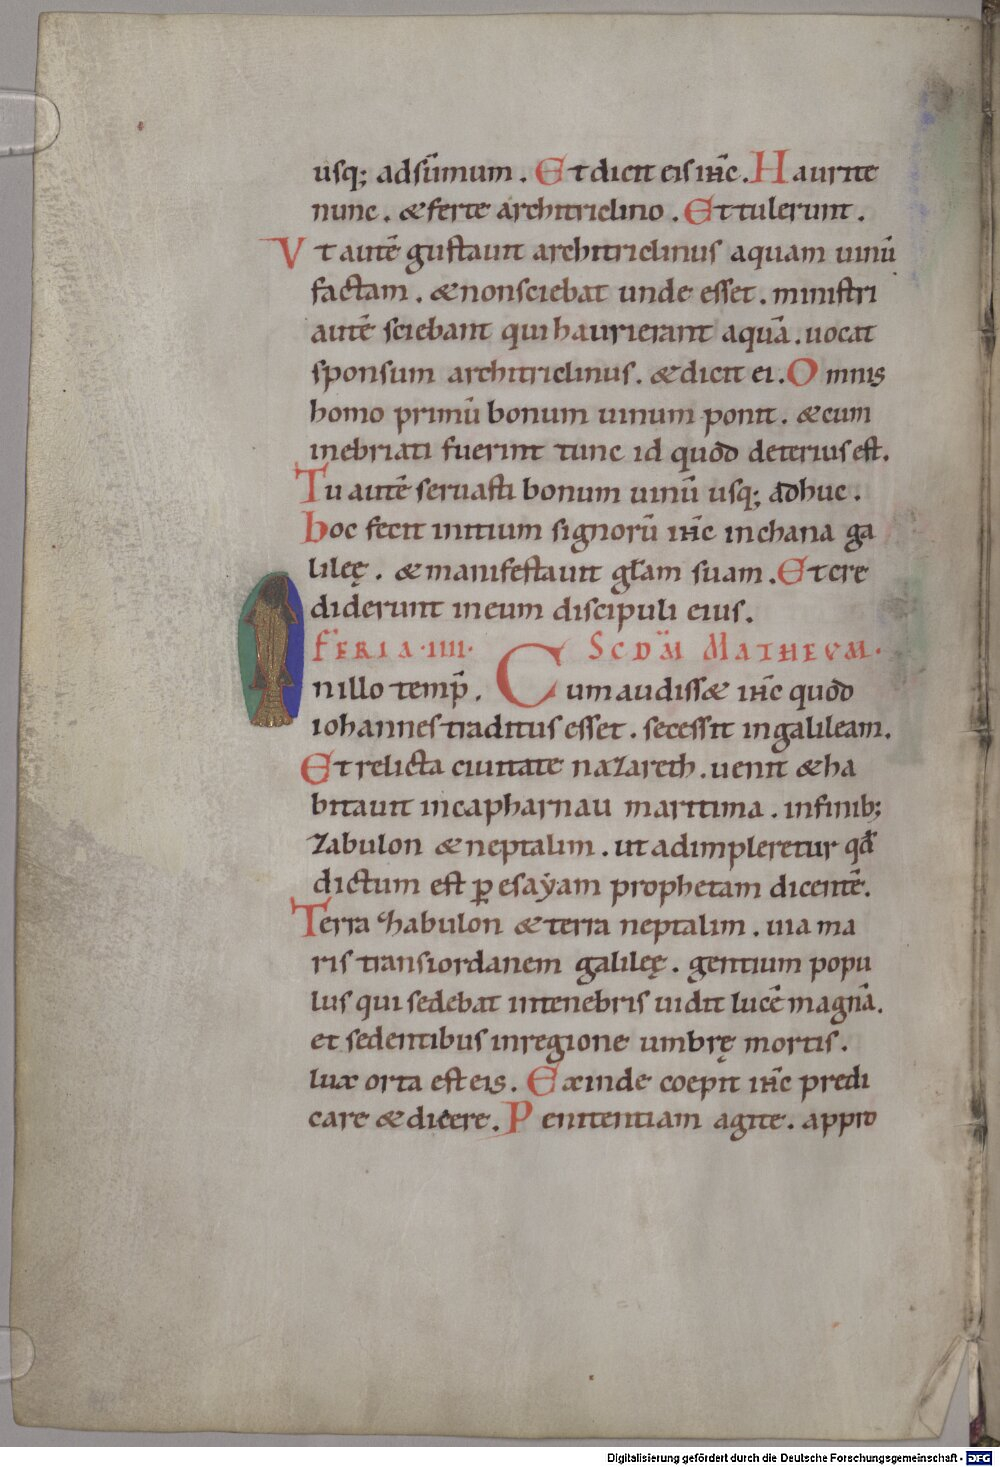 usq; adsūmum. Et dicit eis ih̄c. Haurite
nunc. & ferte architriclino. Et tulerunt.
Vt autē gustauit architriclinus aquam uinū
factam. & nonsciebat unde esset. ministri
autē sciebant qui haurierant aquā. uocat
sponsum architriclinus. & dicit ei. Omnis
homo primū bonum uinum ponit. & cum
inebriati fuerint tunc id quod deterius est.
Tu autē seruasti bonum uinū usq; adhuc.
hoc fecit initium signorū ih̄c inchana ga
lileę. & manifestauit gl̄am suam. Et cre
diderunt ineum discipuli eius.
FERIA·IIII· SCDM̄ MATHEVM.
I nillo temp̄. Cum audiss& ih̄c quod
iohannes traditus esset. secessit ingalileam.
Et relicta ciuitate nazareth. uenit & ha
bitauit incapharnau maritima. infinib;
zabulon & neptalim. ut adimpleretur qd̄
dictum est ꝑ esaẏam prophetam dicentē.
Terra zhabulon & terra neptalim. uia ma
ris transiordanem galileę. gentium popu
lus qui sedebat intenebris uidit lucē magnā.
et sedentibus inregione umbrę mortis.
lux orta est eis. Exinde coepit ih̄c predi
care & dicere. Penitentiam agite. appro
Digitalisierung gefördert durch die Deutsche Forschungsgemeinschaft - DFG